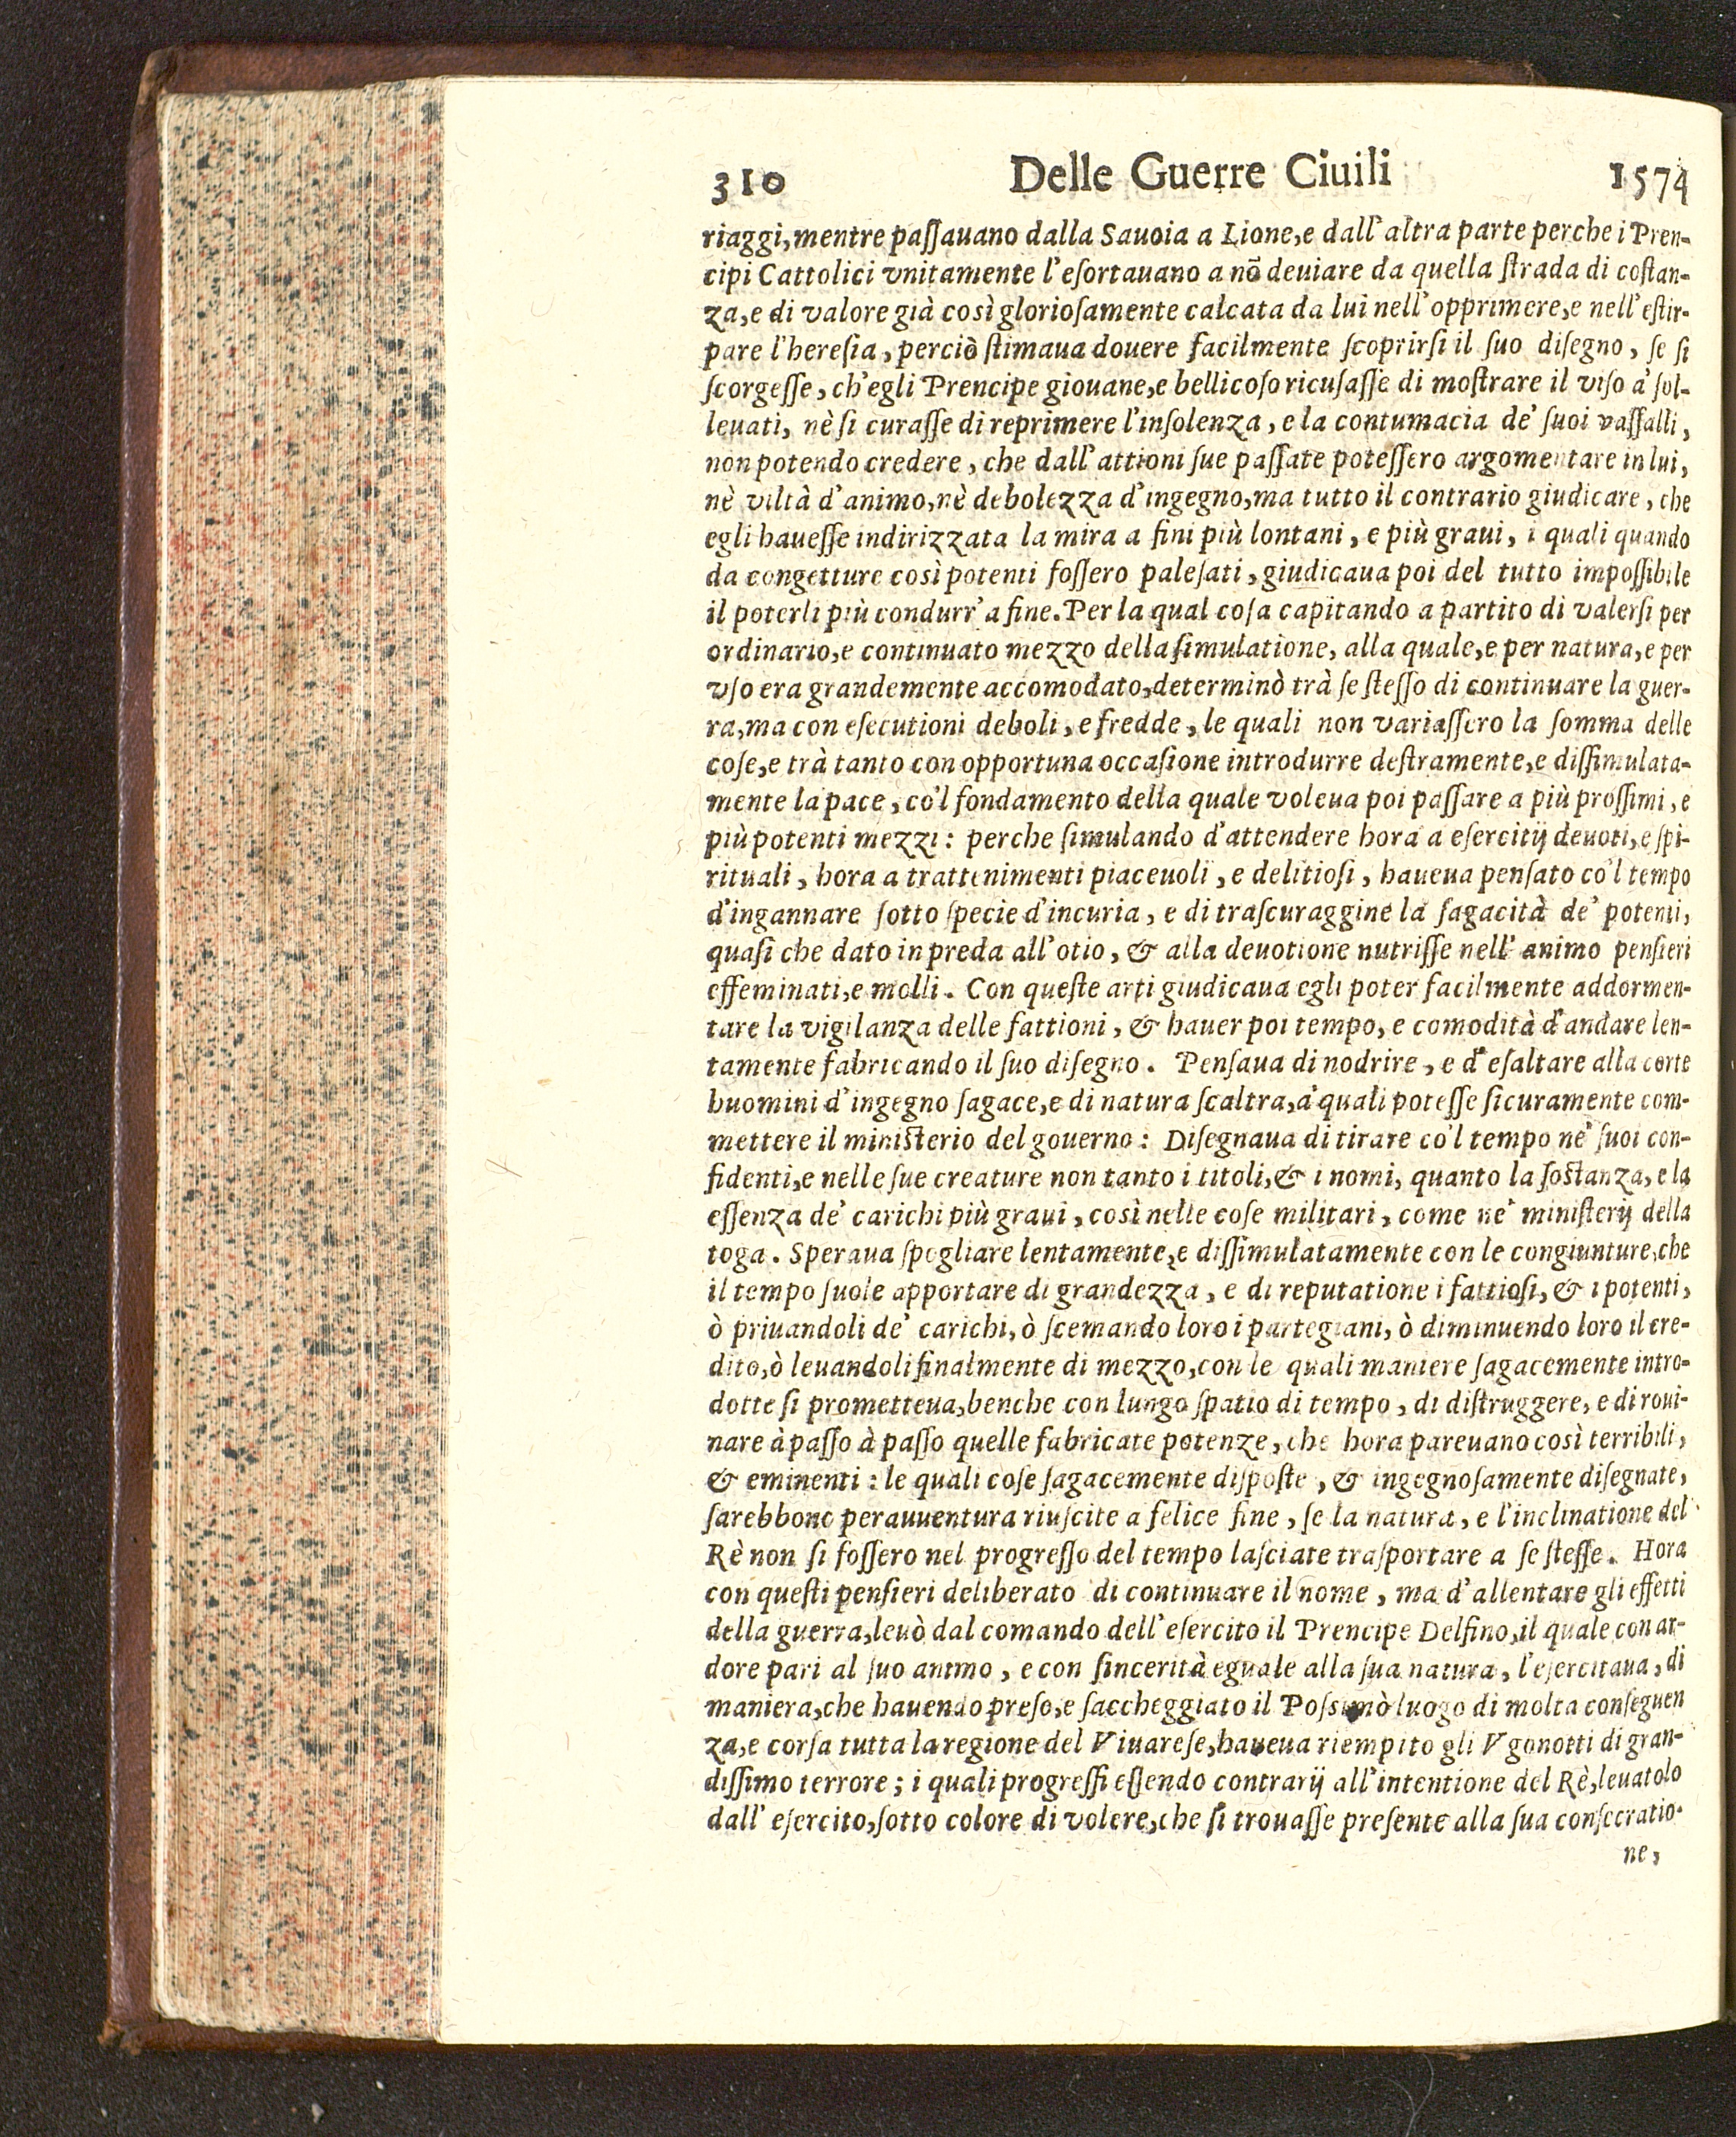 310 Delle Guerre Ciuili 1574
riaggi, mentre paſſauano dalla Sauoia a Lione, e dall'altra parte perche i Pren-
cipi Cattolici vnitamente l'eſortauano a nõ deuiare da quella ſtrada di coſtan-
za, e di valore già così glorioſamente calcata da lui nell'opprimere, e nell'eſtir-
pare l'hereſia, perciò ſtimaua douere facilmente ſcoprirſi il ſuo diſegno, ſe ſi
ſcorgeſſe, ch'egli Prencipe giouane, e bellicoſo ricuſaſſe di moſtrare il viſo a' ſol-
leuati, nè ſi curaſſe di reprimere l'inſolenza, e la contumacia de' ſuoi vaſſalli,
non potendo credere, che dall'attioni ſue paſſate poteſſero argomentare in lui,
nè viltà d'animo, nè debolezza d'ingegno, ma tutto il contrario giudicare, che
egli haueſſe indirizzata la mira a fini più lontani, e più graui, i quali quando
da congetture così potenti foſſero paleſati, giudicaua poi del tutto impoſſibile
il poterli più condurr'a fine. Per la qual coſa capitando a partito di valerſi per
ordinario, e continuato mezzo della ſimulatione, alla quale, e per natura, e per
vſo era grandemente accomodato, determinò trà ſe ſteſſo di continuare la guer-
ra, ma con eſecutioni deboli, e fredde, le quali non variaſſero la ſomma delle
coſe, e trà tanto con opportuna occaſione introdurre deſtramente, e diſſimulata-
mente la pace, co'l fondamento della quale voleua poi paſſare a più proſſimi, e
più potenti mezzi: perche ſimulando d'attendere hora a eſercitij deuoti, e ſpi-
rituali, hora a trattenimenti piaceuoli, e delitioſi, haueua penſato co'l tempo
d'ingannare ſotto ſpecie d'incuria, e di traſcuraggine la ſagacità de' potenti,
quaſi che dato in preda all'otio, & alla deuotione nutriſſe nell'animo penſieri
effeminati, e molli. Con queſte arti giudicaua egli poter facilmente addormen-
tare la vigilanza delle fattioni, & hauer poi tempo, e comodità d'andare len-
tamente fabricando il ſuo diſegno. Penſaua di nodrire, e d'eſaltare alla corte
huomini d'ingegno ſagace, e di natura ſcaltra, a' quali poteſſe ſicuramente com-
mettere il miniſterio del gouerno: Diſegnaua di tirare co'l tempo ne' ſuoi con-
fidenti, e nelle ſue creature non tanto i titoli, & i nomi, quanto la ſoſtanza, e la
eſſenza de' carichi più graui, così nelle coſe militari, come ne' miniſterij della
toga. Speraua ſpogliare lentamente, e diſſimulatamente con le congiunture, che
il tempo ſuole apportare di grandezza, e di reputatione i fattioſi, & i potenti,
ò priuandoli de' carichi, ò ſcemando loro i partegiani, ò diminuendo loro il cre-
dito, ò leuandoli finalmente di mezzo, con le quali maniere ſagacemente intro-
dotte ſi prometteua, benche con lungo ſpatio di tempo, di diſtruggere, e di roui-
nare à paſſo à paſſo quelle fabricate potenze, che hora pareuano così terribili,
& eminenti: le quali coſe ſagacemente diſpoſte, & ingegnoſamente diſegnate,
ſarebbono perauuentura riuſcite a felice fine, ſe la natura, e l'inclinatione del
Rè non ſi foſſero nel progreſſo del tempo laſciate traſportare a ſe ſteſſe. Hora
con queſti penſieri deliberato di continuare il nome, ma d'allentare gli effetti
della guerra, leuò dal comando dell'eſercito il Prencipe Delfino, il quale con ar-
dore pari al ſuo animo, e con ſincerità eguale alla ſua natura, l'eſercitaua, di
maniera, che hauendo preſo, e ſaccheggiato il Poſsimò luogo di molta conſeguen
za, e corſa tutta la regione del Viuareſe, haueua riempito gli Vgonotti di gran-
diſſimo terrore; i quali progreſſi eſſendo contrarij all'intentione del Rè, leuatolo
dall'eſercito, ſotto colore di volere, che ſi trouaſſe preſente alla ſua conſecratio-
ne,